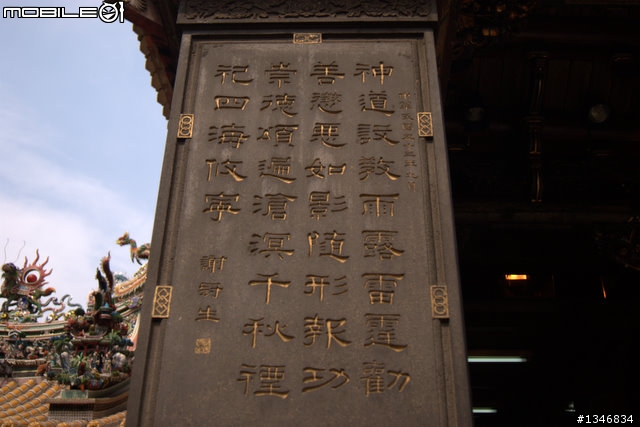 MOBILE01
神道設教雨露雷霆勸
善懲惡如影隨形報功
崇德頌遍滄溟千秋禋
祀四海攸寧
謝冠生
#1346834